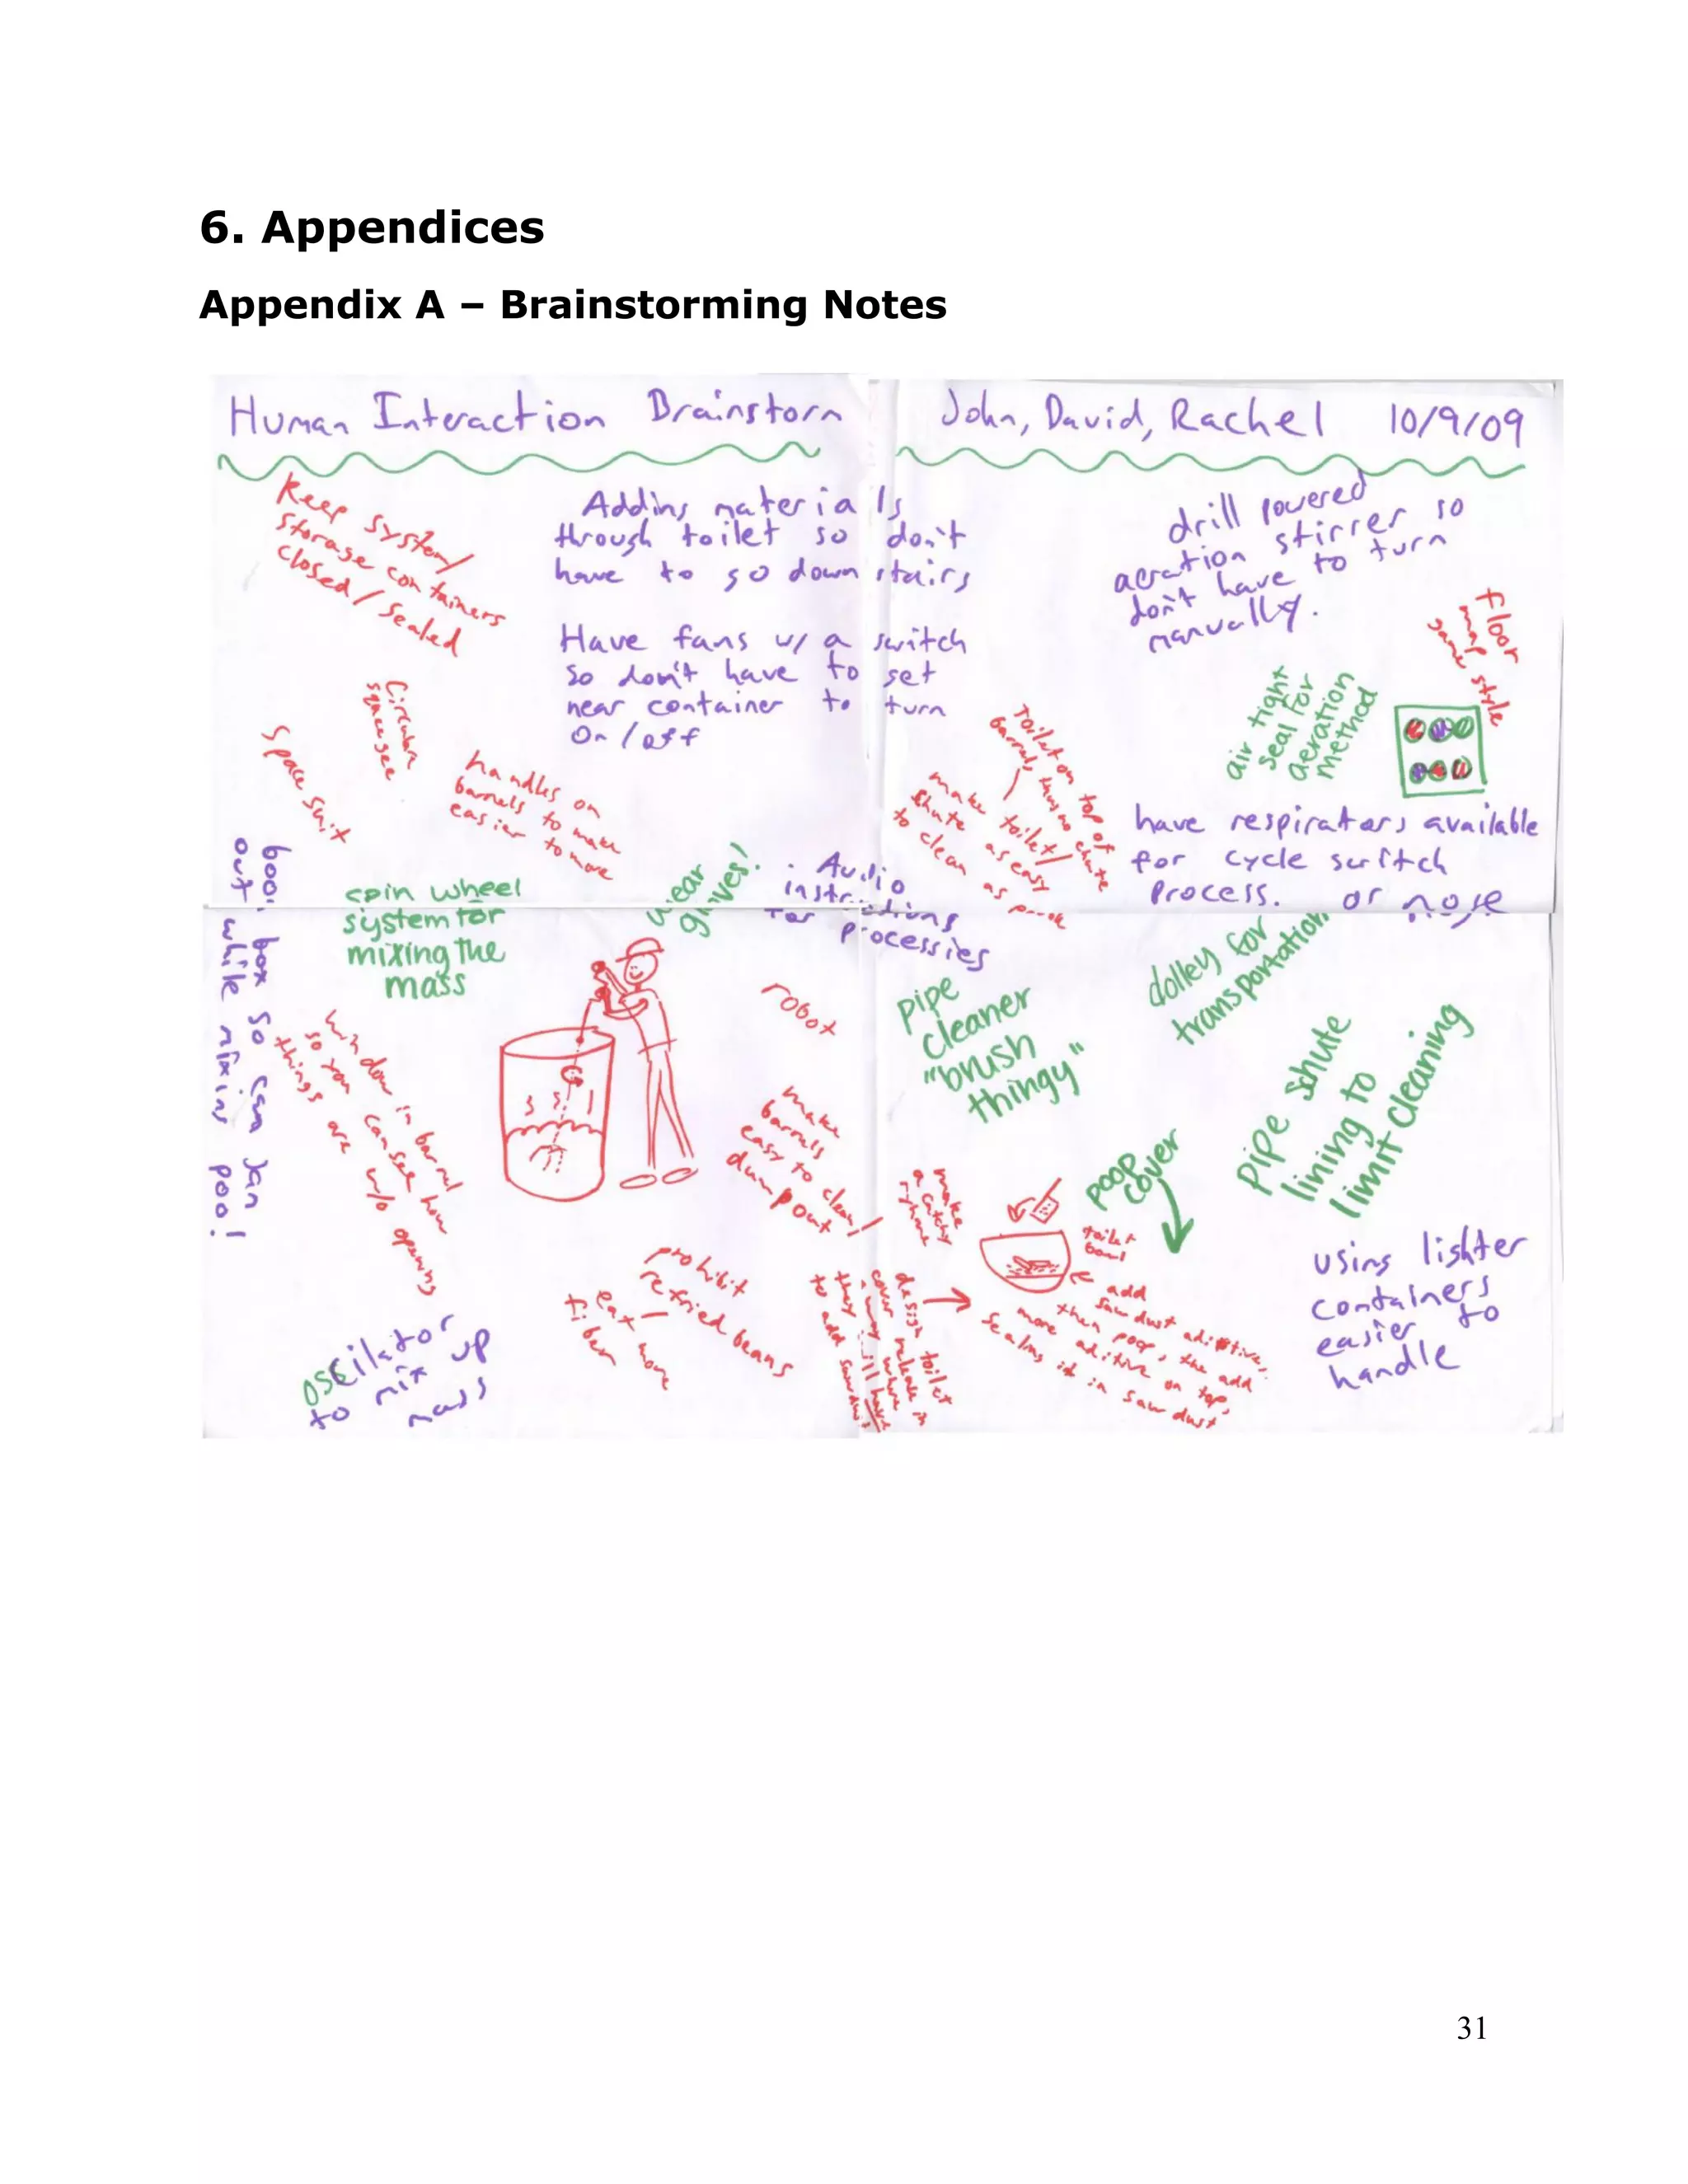 6. Appendices
Appendix A – Brainstorming Notes
Human Interaction Brainstorm
John, David, Rachel 10/9/09
Keep system/
storage containers
closed/sealed
Adding materials
through toilet so don't
have to go down stairs
Have fans w/ a switch
so don't have to get
near container to turn
on/off
drill powered
aeration stirrer so
don't have to turn
manually.
Floor
mat
game style
air tight
seal for
aeration
method
Circular
squeegee
Space suit
handles on
barrels to make
easier to move
Toilet on top of
barrel, thus no chute
make toilet/
shute as easy
to clean as
have respirators available
for cycle switch
process. or nose
boom box so can jam
out while mixing poo!
spin wheel
system for
mixing the
mass
wear
gloves!
Audio
instructions
for processies
robot
pipe
cleaner
"brush
thingy"
dolley for
transportation
pipe shute
lining to
limit cleaning
window in barrel
so you can see how
things are w/o opening
make
barrels
easy to clean/
dump out
make
a catchy
poop
cover
toilet
bowl
add
saw dust aditive,
then poop, the add
more aditive on top,
sealing it in saw dust
design toilet
cover release in
a way where
they will have
to add sawdust
prohibit
refried beans
eat more
fiber
oscilator
to mix up
mass
using lighter
containers
easier to
handle
31